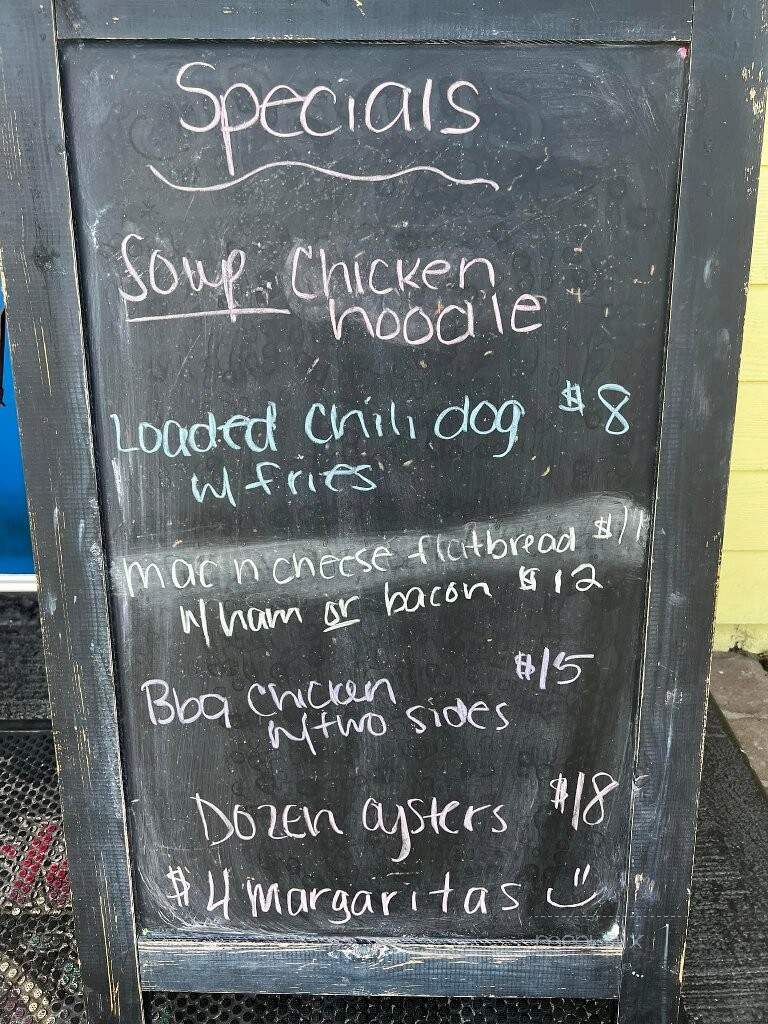 Specials
Soup. Chicken
noodle
Loaded chili dog $8
w/ fries
mac n cheese flatbread $11
w/ ham or bacon $12
Bbq chicken $15
w/ two sides
Dozen oysters $18
$4 margaritas